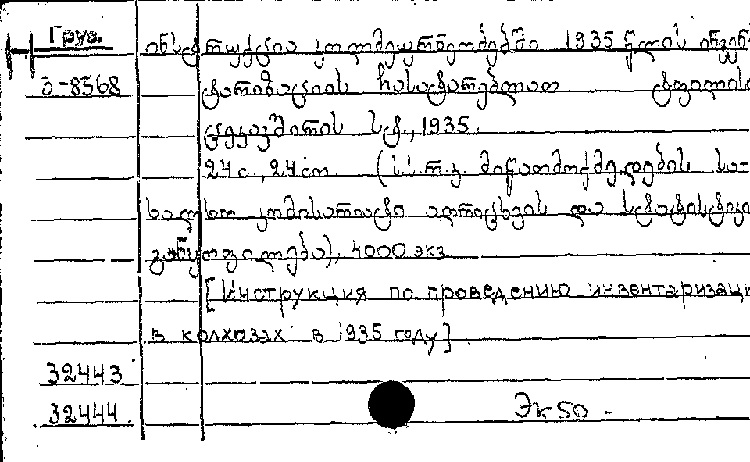 Груз. ინსტრუქცია კოლმეურნეობებში 1935 წლის ინვენ
ა-8568 ტარიზაციის ჩასატარებლათ ტფილის
ტექკავშირის სტ., 1935.
24с., 24 см (სს.რ.კ. მიწათმოქმედების სა-
ხალხო კომისარიატი აღრიცხვის და სტატისტიკი
განყოფილება), 4000 экз
[Инструкция по проведению инвентаризаци
в колхозах в 1935 году].
32443
32444. Эк 50 -